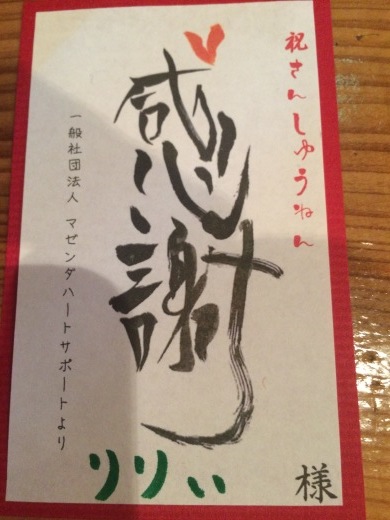 祝さんしゅうねん
感謝
一般社団法人 マゼンダハートサポートより
りりぃ
様